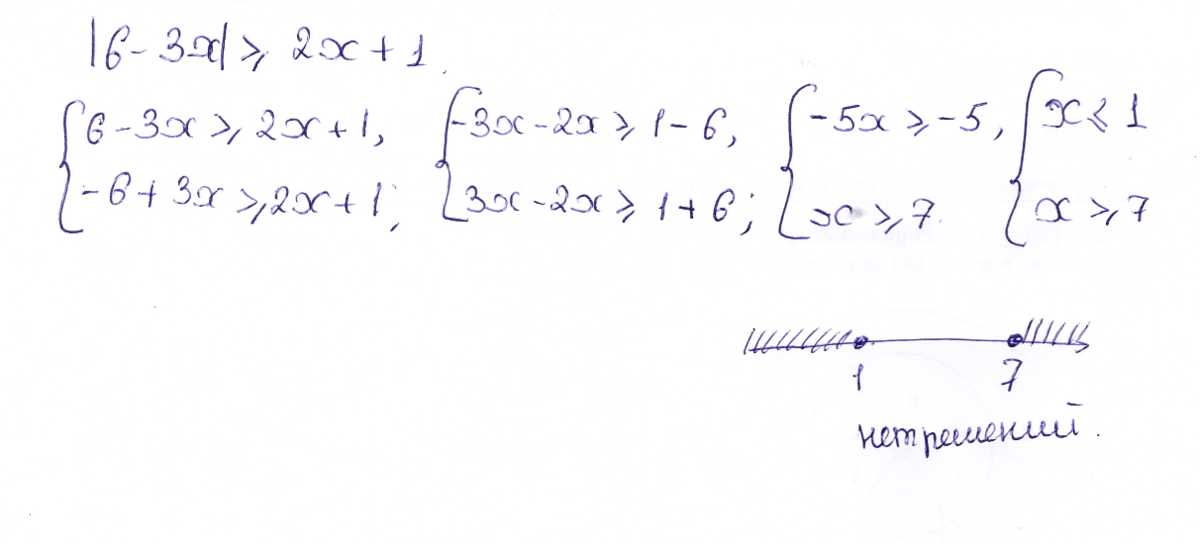 |6-3x| ⩾ 2x+1.
{6-3x ⩾ 2x+1, {-3x-2x ⩾ 1-6, {-5x ⩾ -5, {x ⩽ 1
-6+3x ⩾ 2x+1; 3x-2x ⩾ 1+6; x ⩾ 7. x ⩾ 7
1 7
нет решений.